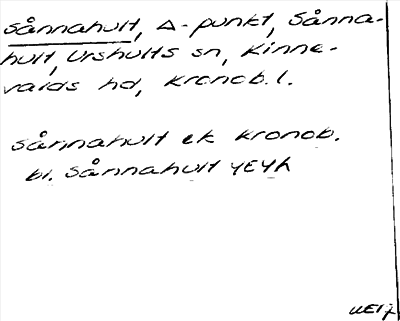 Sånnahult, △-punkt, Sånna-
hult, Urshults sn, Kinne-
valds hd, Kronob. l.
Sånnahult ek Kronob.
bl. Sånnahult 4E4h